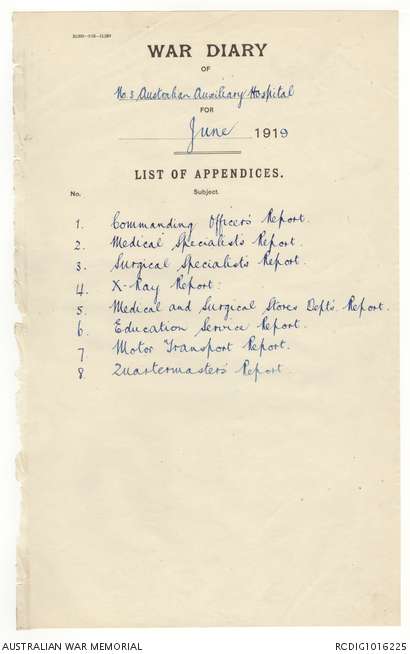 WAR DIARY
OF
No. 3 Australian Auxiliary Hospital
FOR
June 1919
LIST OF APPENDICES.
No. Subject.
1. Commanding Officer's Report.
2. Medical Specialist's Report.
3. Surgical Specialist's Report.
4. X-Ray Report.
5. Medical and Surgical Stores Dept's. Report.
6. Education Service Report.
7 Motor Transport Report.
8 Quartermaster's Report.
AUSTRALIAN WAR MEMORIAL
RCDIG1016225